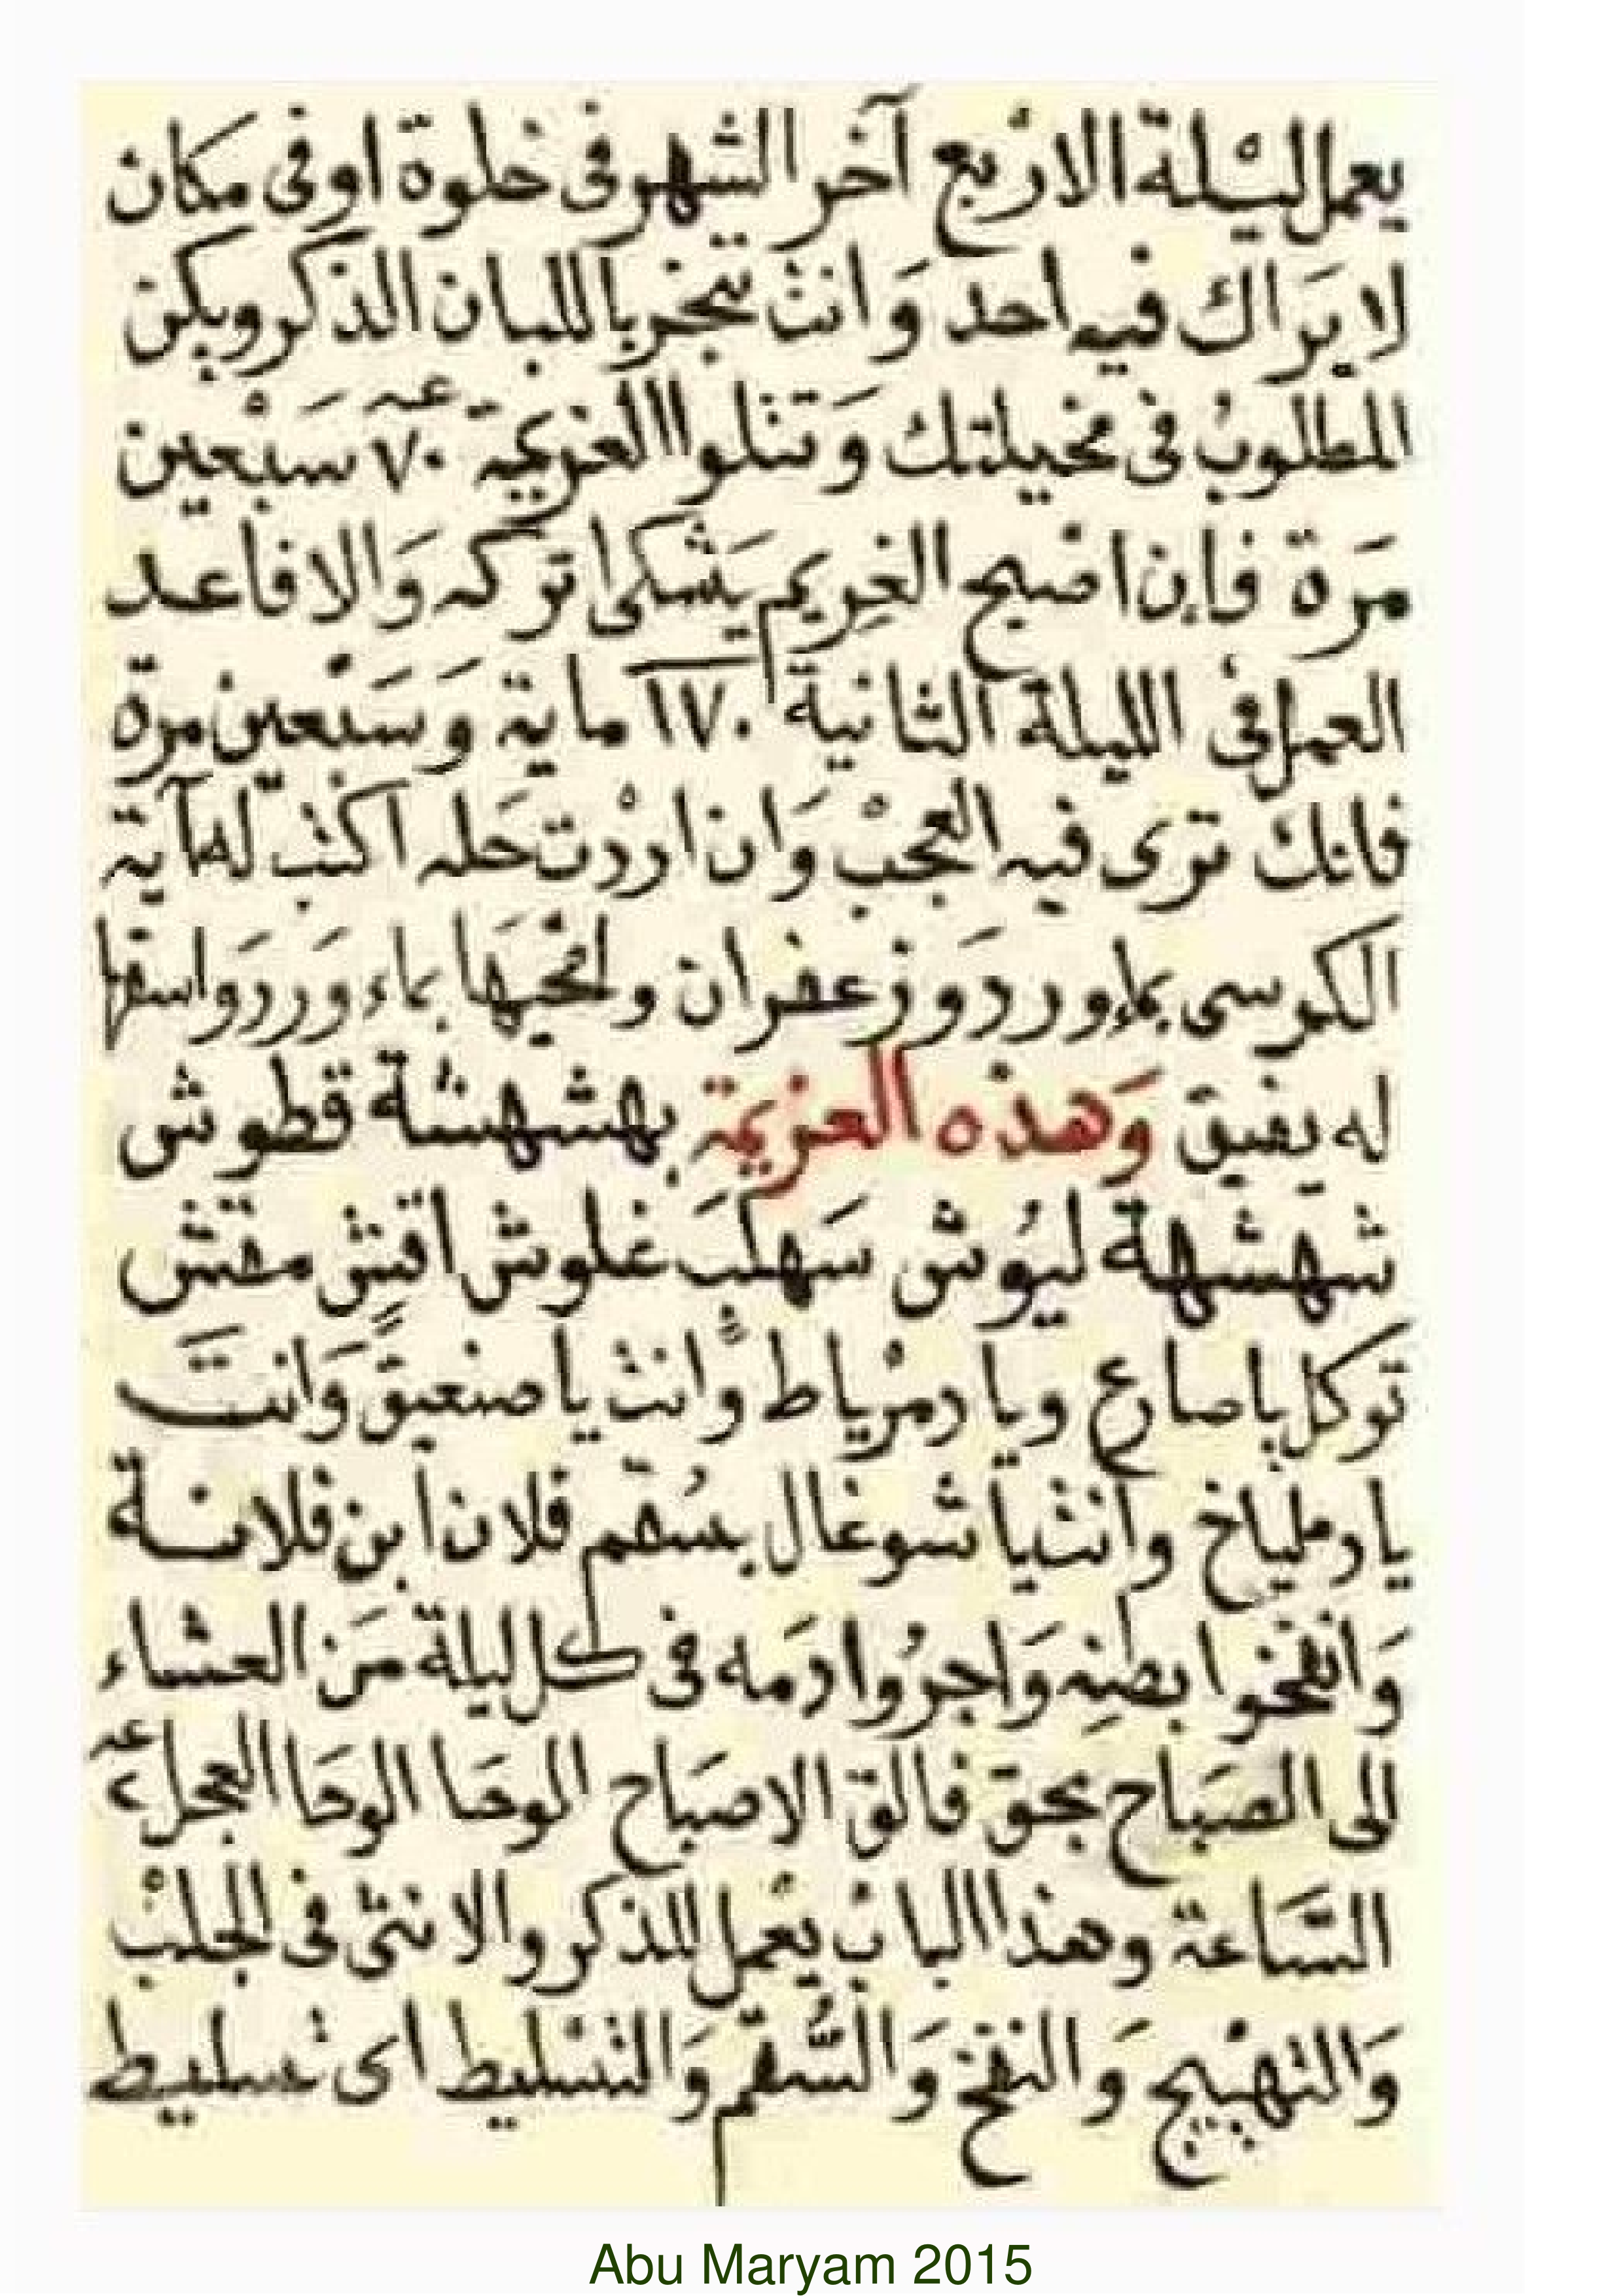 يعمل ليْلة الاربع آخر الشهر فى خلوة او فى مكان
لا يَراك فيه احد وَانت تبخر باللبان الذكر ويكن
المطلوبُ فى مخيلتك وَتتلوا العزيمة ٧٠ سَبْعين
مَرة فإن اصبح الغِريم يَشكى اتركه وَالا فاعد
العمل فى الليلة الثانية ١٧٠ ماية وَسَبعين مرة
فانك ترى فيه العجبْ وَان اردْت حَله اكتب له آية
الكرسى بماء ورد وَزعفران وامحيهَا بماء وَرد وَاسقها
له يفيق وَهذه العزيمة بهشهشة قطوش
شهشهة ليُوش سَهلَب غلوش اقشٍ مقش
توكل يا صاع ويا دمرْياط وانت يا صنعيق وَانتَ
يا دطياخ وانت يا شوغال بسُقم فلان ابن فلانة
وَانفخوا بطنِه وَاجرُوا دمَه فى كل ليلة مَن العشاء
الى الصَباح بحق فالق الاصبَاح الوحَا الوحَا العجل ٢
السَّاعة وهذا الباب يعْمل للذكر والانثى فى الجلبْ
وَالتهْييج وَالنفخ وَالسُّقم وَالتسليط اى تسليط
Abu Maryam 2015